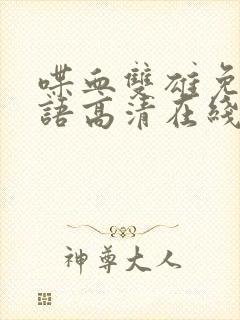 喋血雙雄免
語高清在綫
神尊大人